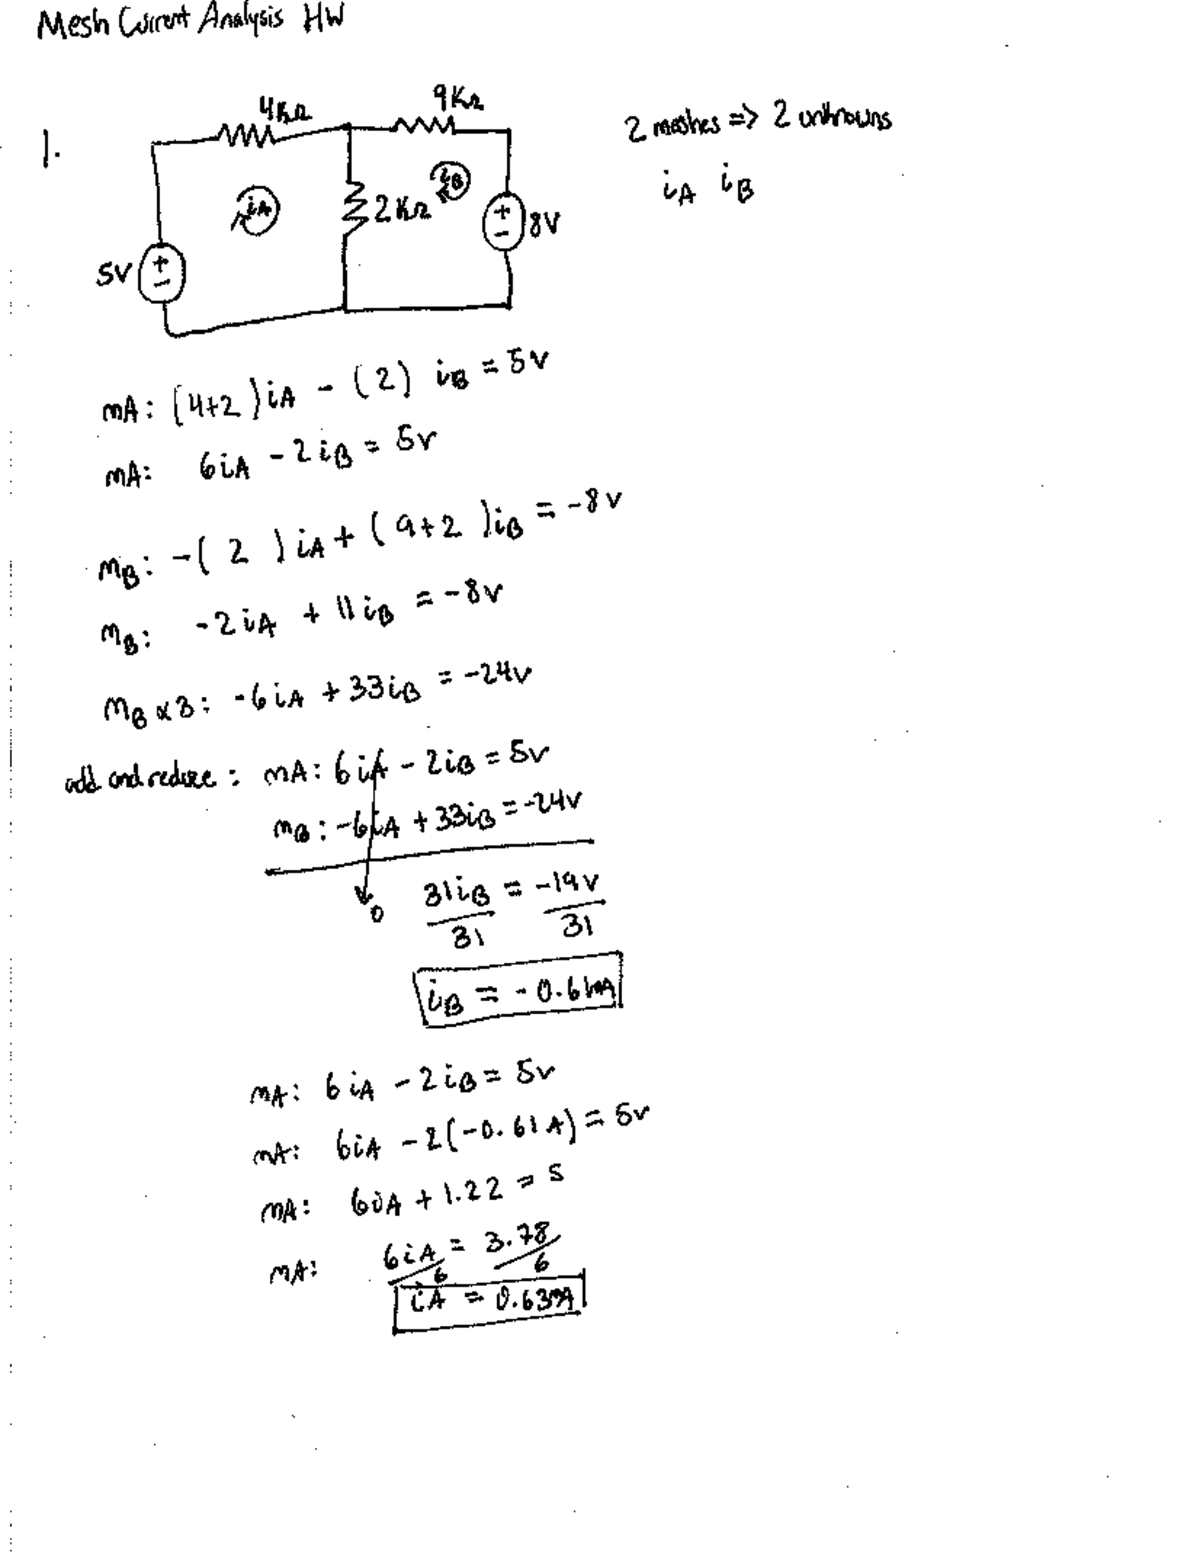 Mesh Current Analysis HW
1.
4KΩ
9KΩ
2 meshes => 2 unknowns
iA iB
iA
iB
2KΩ
+
-
8V
5V
+
-
mA: (4+2)iA - (2) iB = 5v
mA: 6iA - 2iB = 5v
mB: -( 2 ) iA + ( 9+2 )iB = -8v
mB: -2iA + 11iB = -8v
mB x3: -6iA + 33iB = -24v
add and reduce: mA: 6iA - 2iB = 5v
mB: -6iA + 33iB = -24v
0
31iB = -19v
31 31
iB = -0.61mA
mA: 6iA - 2iB = 5v
mA: 6iA - 2(-0.61A) = 5v
mA: 6iA + 1.22 = 5
mA: 6iA = 3.78
6 6
iA = 0.63mA